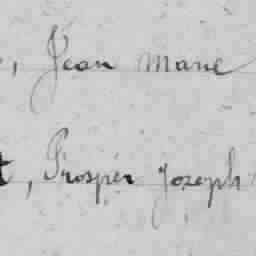 , Jean Marie
t, Prosper Jozeph